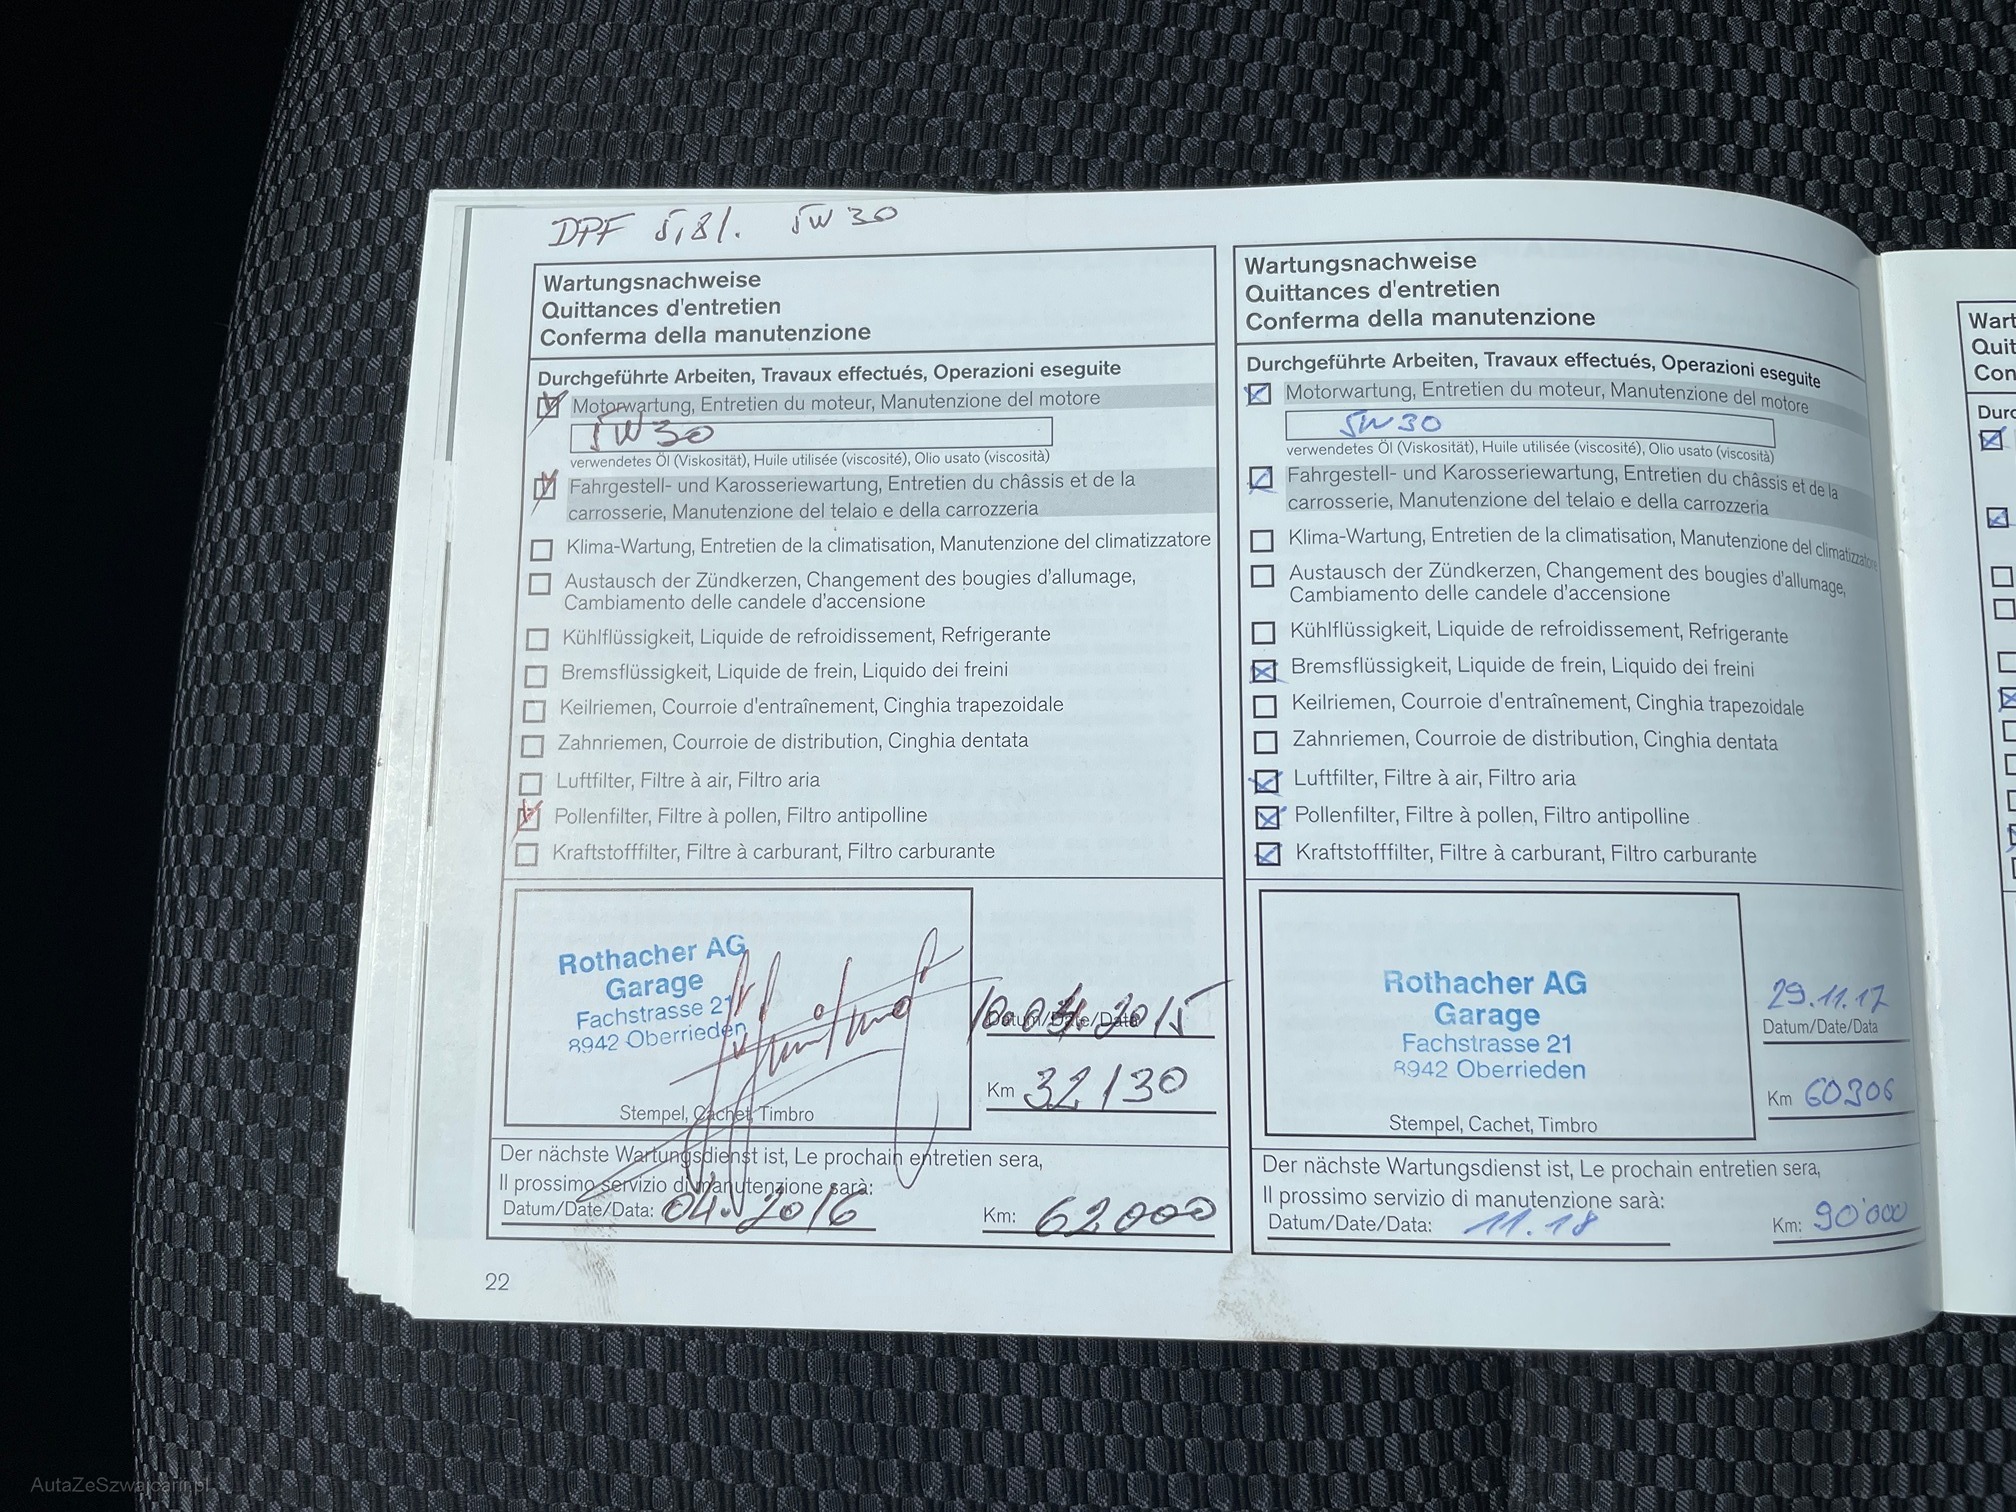 DPF 5,8l. 5W30
Wartungsnachweise
Quittances d'entretien
Conferma della manutenzione
Durchgeführte Arbeiten, Travaux effectués, Operazioni eseguite
Motorwartung, Entretien du moteur, Manutenzione del motore
5W30
verwendetes Öl (Viskosität), Huile utilisée (viscosité), Olio usato (viscosità)
Fahrgestell- und Karosseriewartung, Entretien du châssis et de la
carrosserie, Manutenzione del telaio e della carrozzeria
Klima-Wartung, Entretien de la climatisation, Manutenzione del climatizzatore
Austausch der Zündkerzen, Changement des bougies d'allumage,
Cambiamento delle candele d'accensione
Kühlflüssigkeit, Liquide de refroidissement, Refrigerante
Bremsflüssigkeit, Liquide de frein, Liquido dei freini
Keilriemen, Courroie d'entraînement, Cinghia trapezoidale
Zahnriemen, Courroie de distribution, Cinghia dentata
Luftfilter, Filtre à air, Filtro aria
Pollenfilter, Filtre à pollen, Filtro antipolline
Kraftstofffilter, Filtre à carburant, Filtro carburante
Rothacher AG
Garage
Fachstrasse 21
8942 Oberrieden
Stempel, Cachet, Timbro
10.04.2015
Datum/Date/Data
Km 32130
Der nächste Wartungsdienst ist, Le prochain entretien sera,
Il prossimo servizio di manutenzione sarà:
Datum/Date/Data: 04.2016 Km: 62000
22
Wartungsnachweise
Quittances d'entretien
Conferma della manutenzione
Durchgeführte Arbeiten, Travaux effectués, Operazioni eseguite
Motorwartung, Entretien du moteur, Manutenzione del motore
5W30
verwendetes Öl (Viskosität), Huile utilisée (viscosité), Olio usato (viscosità)
Fahrgestell- und Karosseriewartung, Entretien du châssis et de la
carrosserie, Manutenzione del telaio e della carrozzeria
Klima-Wartung, Entretien de la climatisation, Manutenzione del climatizzatore
Austausch der Zündkerzen, Changement des bougies d'allumage,
Cambiamento delle candele d'accensione
Kühlflüssigkeit, Liquide de refroidissement, Refrigerante
Bremsflüssigkeit, Liquide de frein, Liquido dei freini
Keilriemen, Courroie d'entraînement, Cinghia trapezoidale
Zahnriemen, Courroie de distribution, Cinghia dentata
Luftfilter, Filtre à air, Filtro aria
Pollenfilter, Filtre à pollen, Filtro antipolline
Kraftstofffilter, Filtre à carburant, Filtro carburante
Rothacher AG
Garage
Fachstrasse 21
8942 Oberrieden
Stempel, Cachet, Timbro
29.11.17
Datum/Date/Data
Km 60306
Der nächste Wartungsdienst ist, Le prochain entretien sera,
Il prossimo servizio di manutenzione sarà:
Datum/Date/Data: 11.18 Km: 90'000
Wart
Quit
Con
Durc
AutaZeSzwajcarii.pl